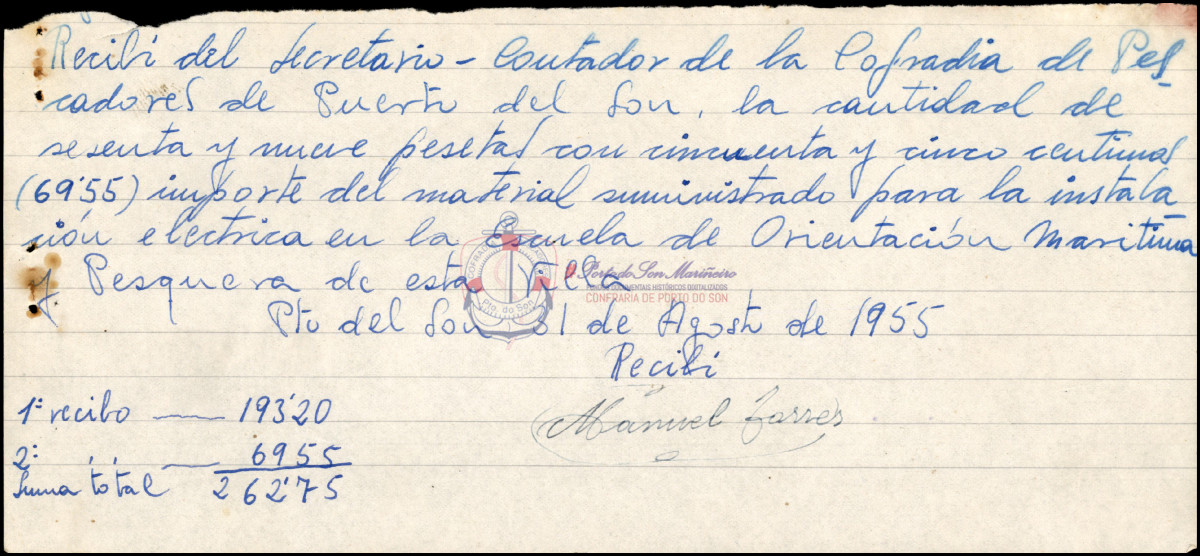 Recibi del Secretario - Contador de la Cofradia de Pes
cadores de Puerto del Son, la cantidad de
sesenta y nueve pesetas con cincuenta y cinco centimos
(69'55) importe del material suministrado para la instala
ción electrica en la escuela de Orientación Maritima
y Pesquera de esta Villa
Pto del Son 31 de Agosto de 1955
Recibi
Manuel
1º recibo —— 193'20
2º " " —— 6955
Suma total 262'75
COFRADIA
Pto. do Son
Porto do Son Mariñeiro
FONDOS DOCUMENTAIS HISTÓRICOS DIGITALIZADOS
CONFRARIA DE PORTO DO SON